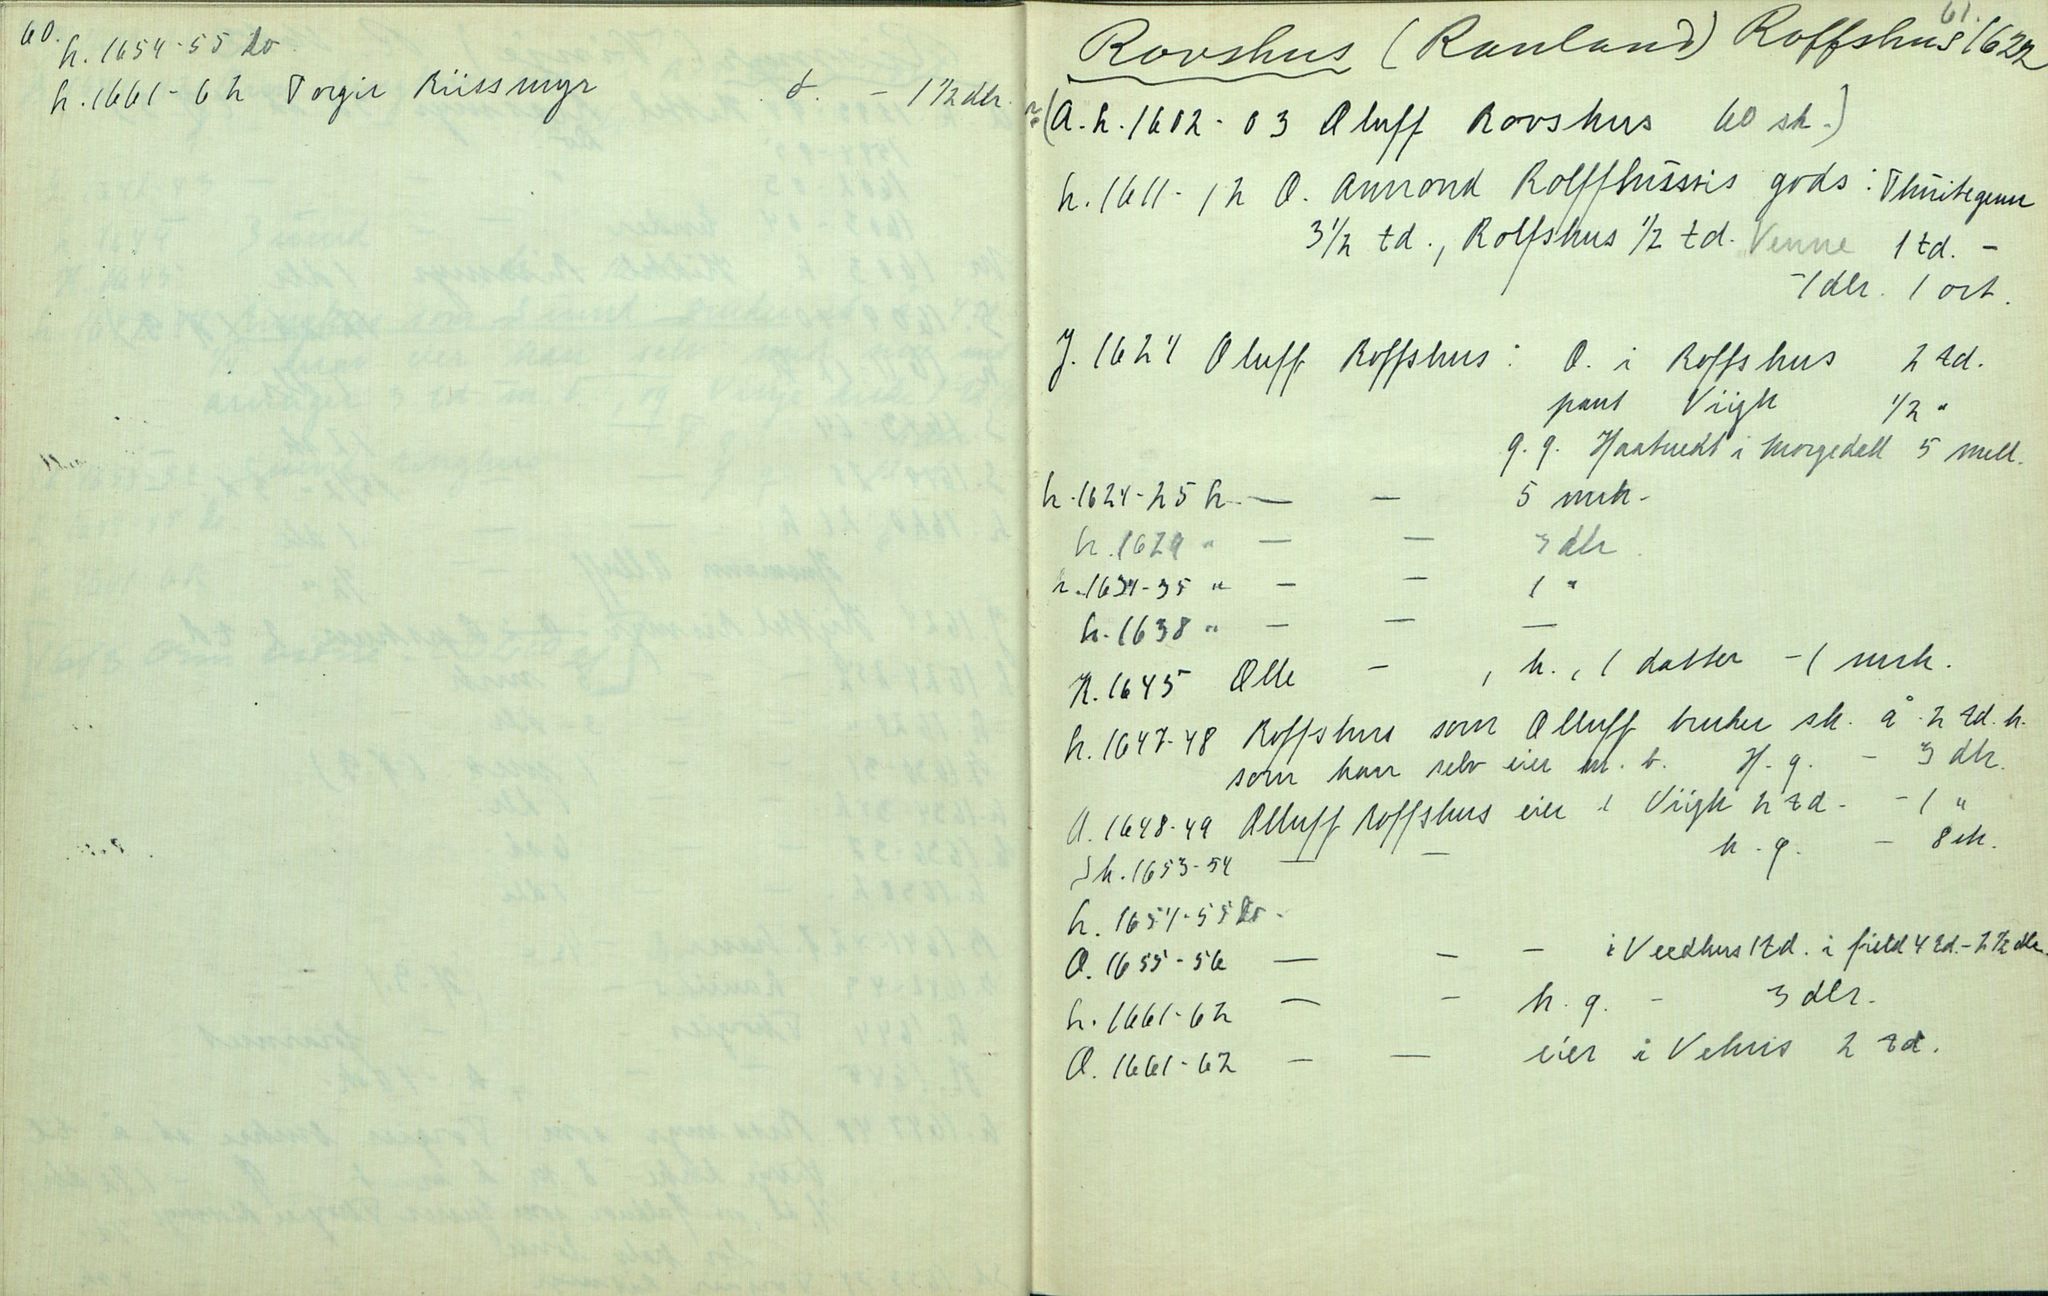 60.
h. 1654-55 do
h. 1661-62 Torgir Riissmyr d. - 1 1/2 dlr.
61.
Rovshus (Rauland) Roffshus 1622
(A.h. 1602-03 Oluff Rovshus 60 sk.)
h. 1611-12 O. Anmond Rolffhussis gods:
3 1/2 td., Rolfshus 1/2 td. Venne 1 td. -
-1 dlr. 1 ort.
J. 1624 Oluff Roffshus: O. i Roffshus 2 td.
pant Viigh 1/2 "
g.g. Haatuedt i Morgedall 5 mell.
h. 1624-25 h. — — 5 mrk.
h. 1629 " — — 3 dlr.
h. 1634-35 " — — 1 "
h. 1638 " — — —
K. 1645 Olle — , k., 1 datter - 1 mrk.
h. 1647-48 Roffshus som Olluff bruker sk. å 2 td. k.
som han selv eier m. b. H. g. - 3 dlr.
O. 1648-49 Olluff Roffshus eier i Viigh 2 td. - 1 "
Sk. 1653-54 — — h. g. - 8 sk.
h. 1654-55 do.
O. 1655-56 — — — i Veedhus 1 td. i field 4 td. - 2 1/2 dlr.
h. 1661-62 — — h. g. - 3 dlr.
O. 1661-62 — — eier i Vehus 2 td.